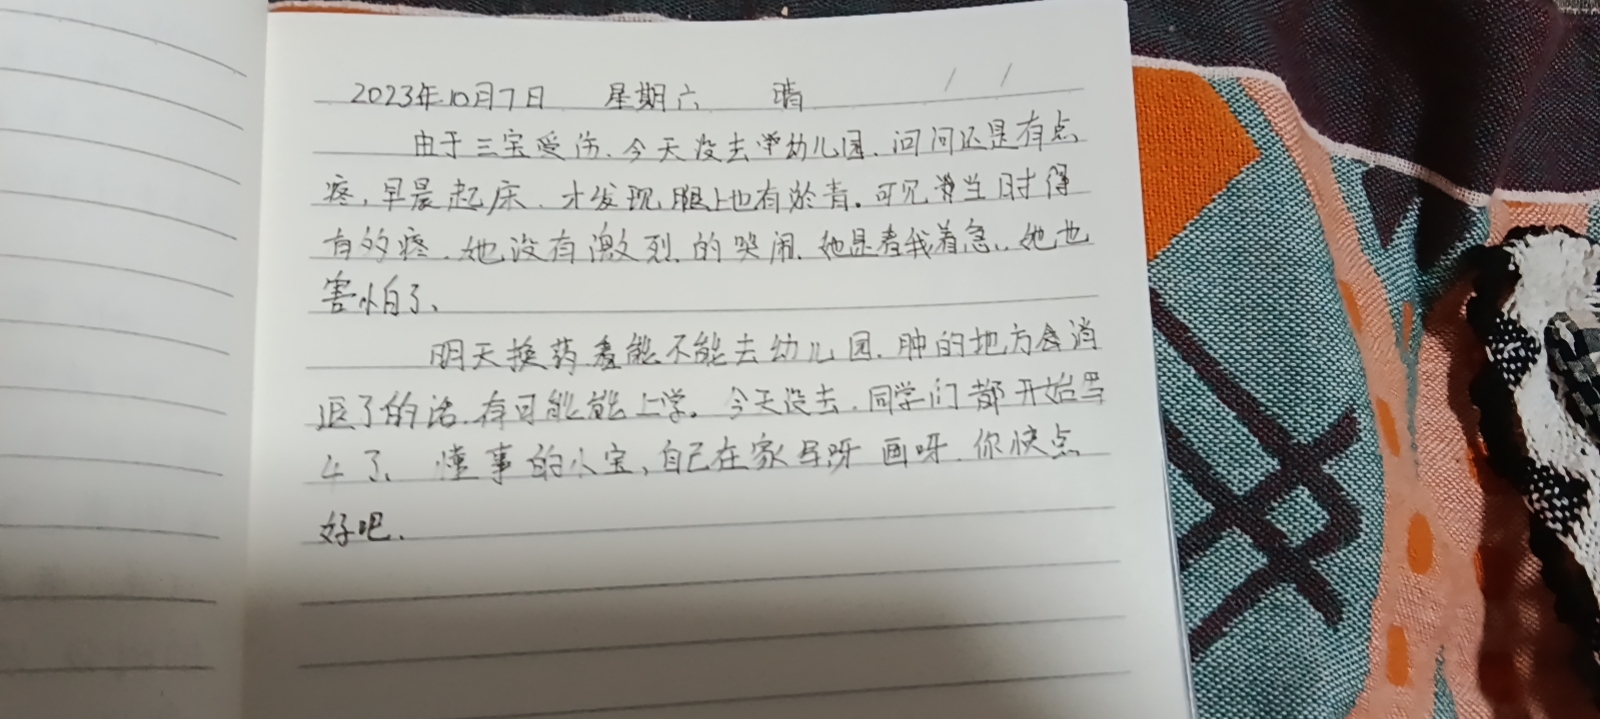 2023年10月7日 星期六 晴
由于三宝受伤.今天没去幼儿园.问问还是有点
疼,早晨起床.才发现腿上也有淤青。可见当时得
有多疼.她没有激烈的哭闹.她是看我着急..她也
害怕了、
明天换药看能不能去幼儿园.肿的地方会消
退了的话.有可能能上学。今天没去.同学们都开始写
4了、懂事的小宝,自己在家写呀画呀.你快点
好吧.